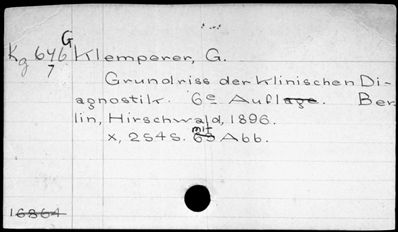 Kg 646 G Klemperer, G.
7
Grundriss der klinischen Di-
agnostik. 6e Auflage. Ber-
lin, Hirschwald, 1896.
x, 254S. mit 65 Abb.
16864